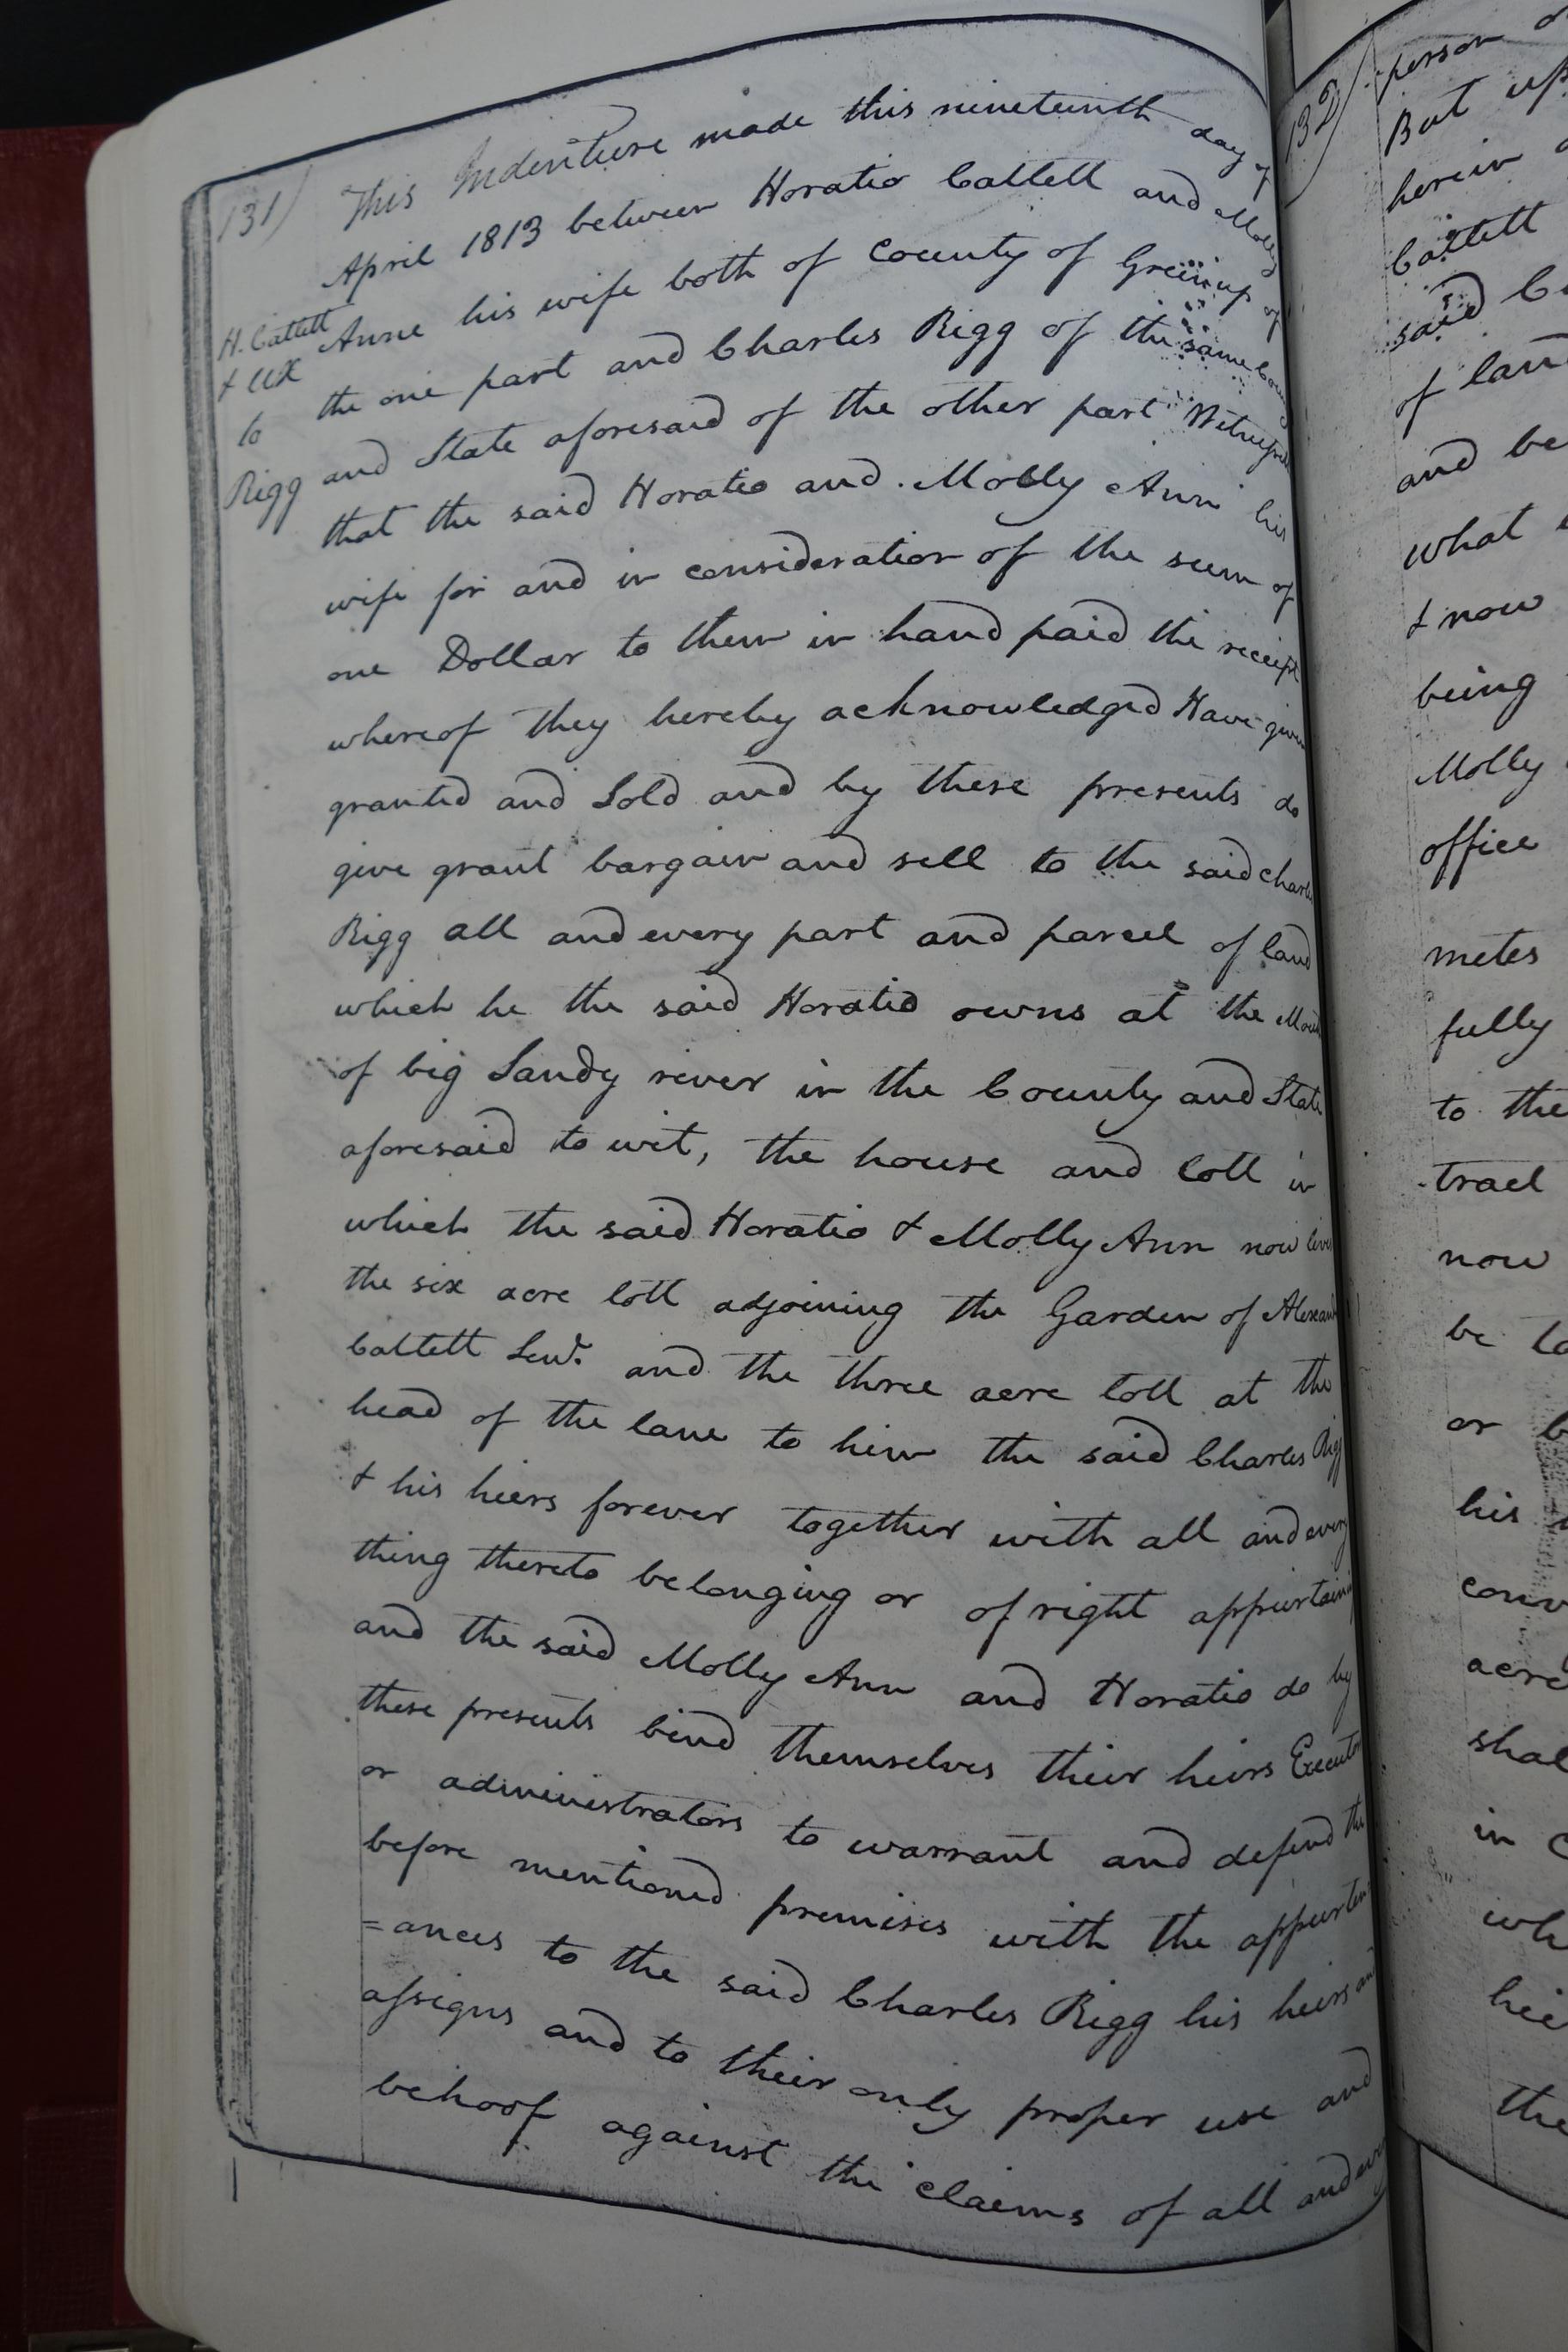 131)
This Indenture made this nineteenth day of
April 1813 between Horatio Catlett and Molly
H. Catlett
& ux
to
Rigg
Anne his wife both of County of Greenup of
the one part and Charles Rigg of the same
and State aforesaid of the other part
that the said Horatio and Molly Ann his
wife for and in consideration of the sum of
one Dollar to them in hand paid the receipt
whereof they hereby acknowledged Have given
granted and Sold and by these presents do
give grant bargain and sell to the said Charles
Rigg all and every part and parcel of land
which he the said Horatio owns at the
of big Sandy river in the County and State
aforesaid to wit, the house and lott in
which the said Horatio & Molly Ann now
the six acre lott adjoining the Garden of
Catlett Senr. and the three acre lott at the
head of the lane to him the said Charles Rigg
& his heers forever together with all and every
thing thereto belonging or of right
and the said Molly Ann and Horatio do by
these presents bind themselves their heirs
or administrators to warrant and defend the
before mentioned premises with the
=ances to the said Charles Rigg his heirs and
assigns and to their only proper use and
behoof against the claims of all and
132)
person
But
herein
Catlett
said
of
and be
what
& now
being
Molly
office
metes
fully
to the
tract
now
be
or
his
acre
in
the